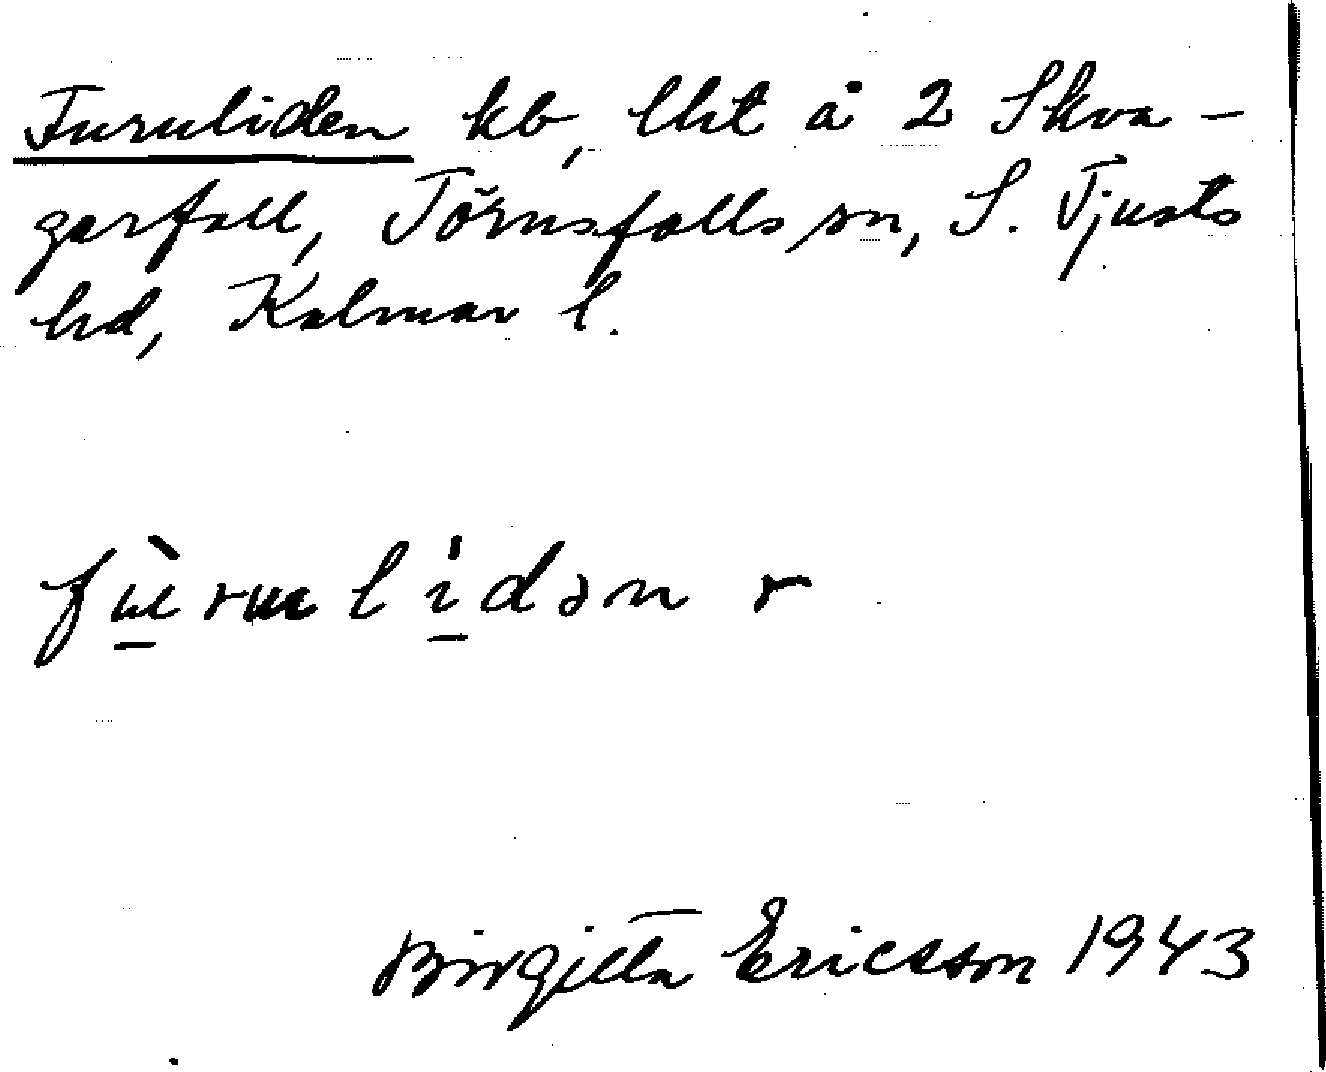 Furuliden kb, lht å 2 Skva-
garfall, Törnsfalls sn, S. Tjusts
hd, Kalmar l.
fù̠rulı̠̍dən r
Birgitta Ericsson 1943